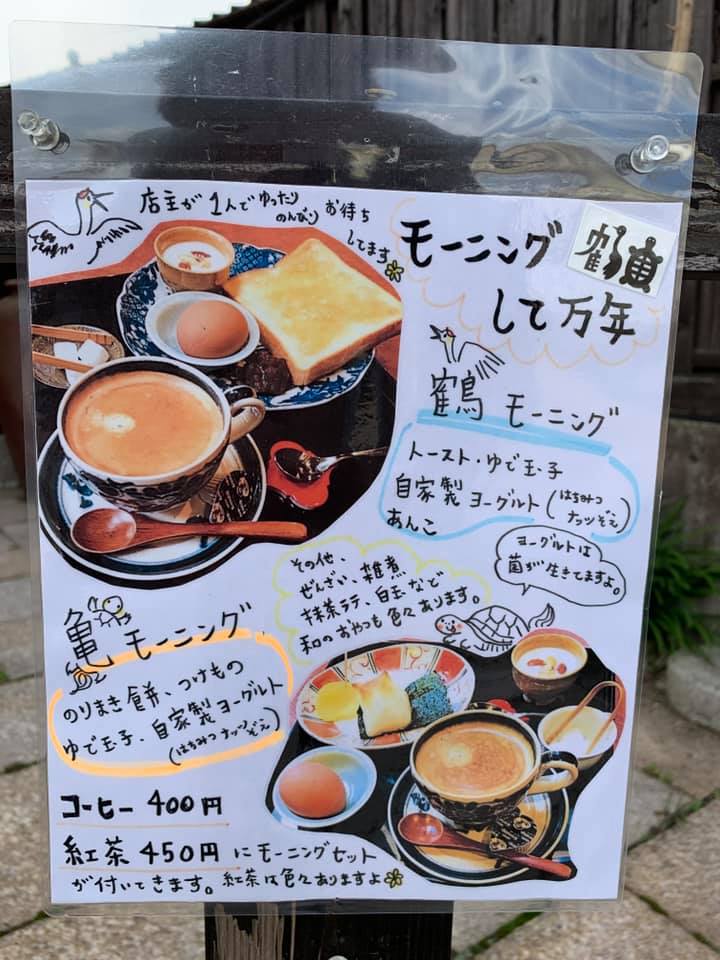 店主が1人でゆったり
のんびり お待ち
してます
モーニング
して万年
鶴亀
鶴 モーニング
トースト・ゆで玉子
自家製 ヨーグルト(はちみつ
ナッツぞえ)
あんこ
ヨーグルトは
菌が生きてますよ。
その他、
ぜんざい、雑煮
抹茶ラテ、白玉など
和のおやつも色々あります。
亀 モーニング
のりまき餅、つけもの
ゆで玉子、自家製ヨーグルト
(はちみつナッツぞえ)
コーヒー 400円
紅茶 450円 にモーニングセット
が付いてきます。紅茶は色々ありますよ